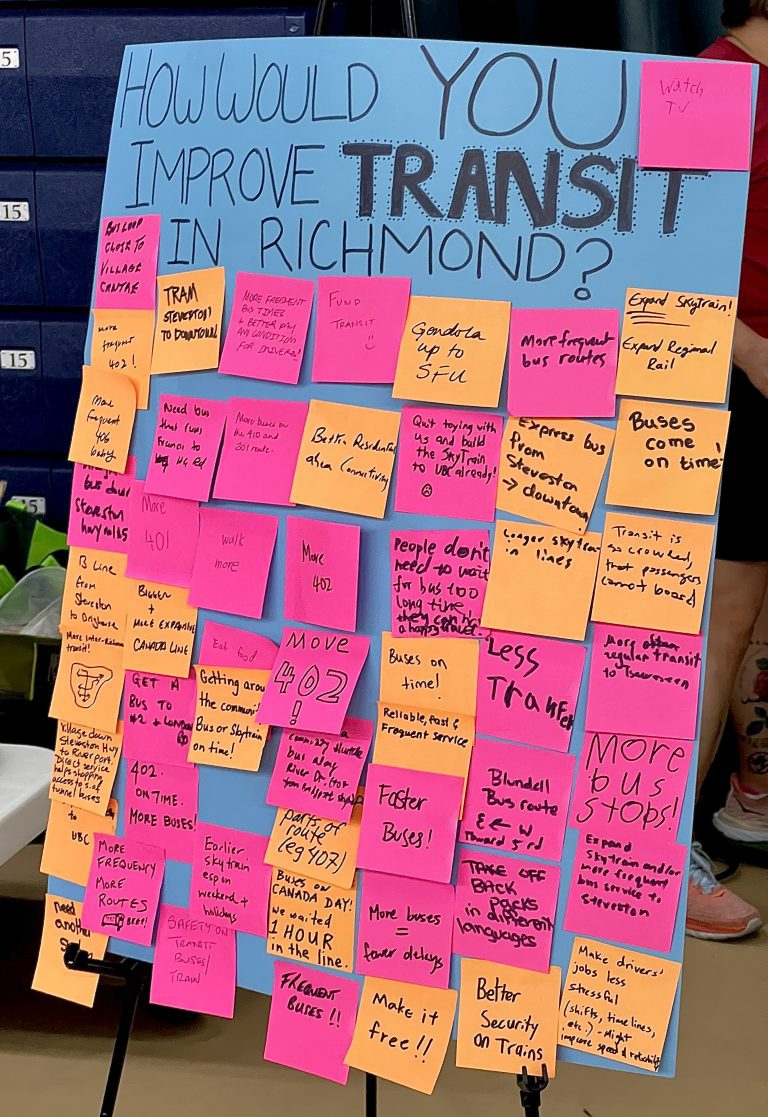 HOW WOULD YOU
IMPROVE TRANSIT
IN RICHMOND?
Watch
TV
BUS LOOP
CLOSE TO
VILLAGE
CENTRE
TRAM
STEVESTON
TO DOWNTOWN
MORE FREQUENT
BUS TIMES
+ BETTER
CONDITIONS
FOR DRIVERS!
FUND
TRANSIT
Gondola
up to
SFU
More frequent
bus routes
Expand Skytrain!
Expand Regional
Rail
more
frequent
402!
More
frequent
406
baby
Need bus
that runs
Francis to
Rd
More buses on
the 410 and
301 route.
Better Residential
area Connectivity
Quit toying with
us and build
the SkyTrain
to UBC already!
Express bus
from
Steveston
→ downtown
Buses
come
on time!
bus down
Steveston
hwy
More
401
walk
more
More
402
People don't
need to wait
for bus too
long time
they can
a happy
Longer skytrain
in lines
Transit is
so crowded,
that passengers
cannot board
B Line
from
Steveston
to Brighouse
BIGGER
+
MORE EXPANSIVE
CANADA LINE
Eat food
MOVE
402
!
Buses on
time!
Less
Transfer
More often
regular transit
to Tsawwassen
More Inter-Richmond
transit!
GET A
BUS TO
#2 + LONDON
RD
Getting around
the community
Bus or Skytrain
on time!
community shuttle
bus along
River Dr.
Reliable, fast &
Frequent service
Village down
Steveston Hwy
to Riverport.
Direct service
helps shopping
access to S. of
tunnel buses
402.
ON TIME.
MORE BUSES!
parts of
route
(eg 407)
Faster
Buses!
Blundell
Bus route
E ↔ W
Toward 5 rd
MORE
bus
STOPS!
to
UBC
MORE
FREQUENCY
MORE
ROUTES
BEEP!
Earlier
skytrain
esp on
weekend +
holidays
BUSES ON
CANADA DAY!
we waited
1 HOUR
in the line.
More buses
=
fewer delays
TAKE OFF
BACK
PACKS
in different
languages
Expand
Skytrain and/or
more frequent
bus service to
Steveston
need
another
SAFETY ON
TRANSIT
BUSES/
TRAIN
FREQUENT
BUSES!!
Make it
free!!
Better
Security
on Trains
Make drivers'
jobs less
stressful
(shifts, timelines,
etc.) - Might
improve speed reliability
15
15
15